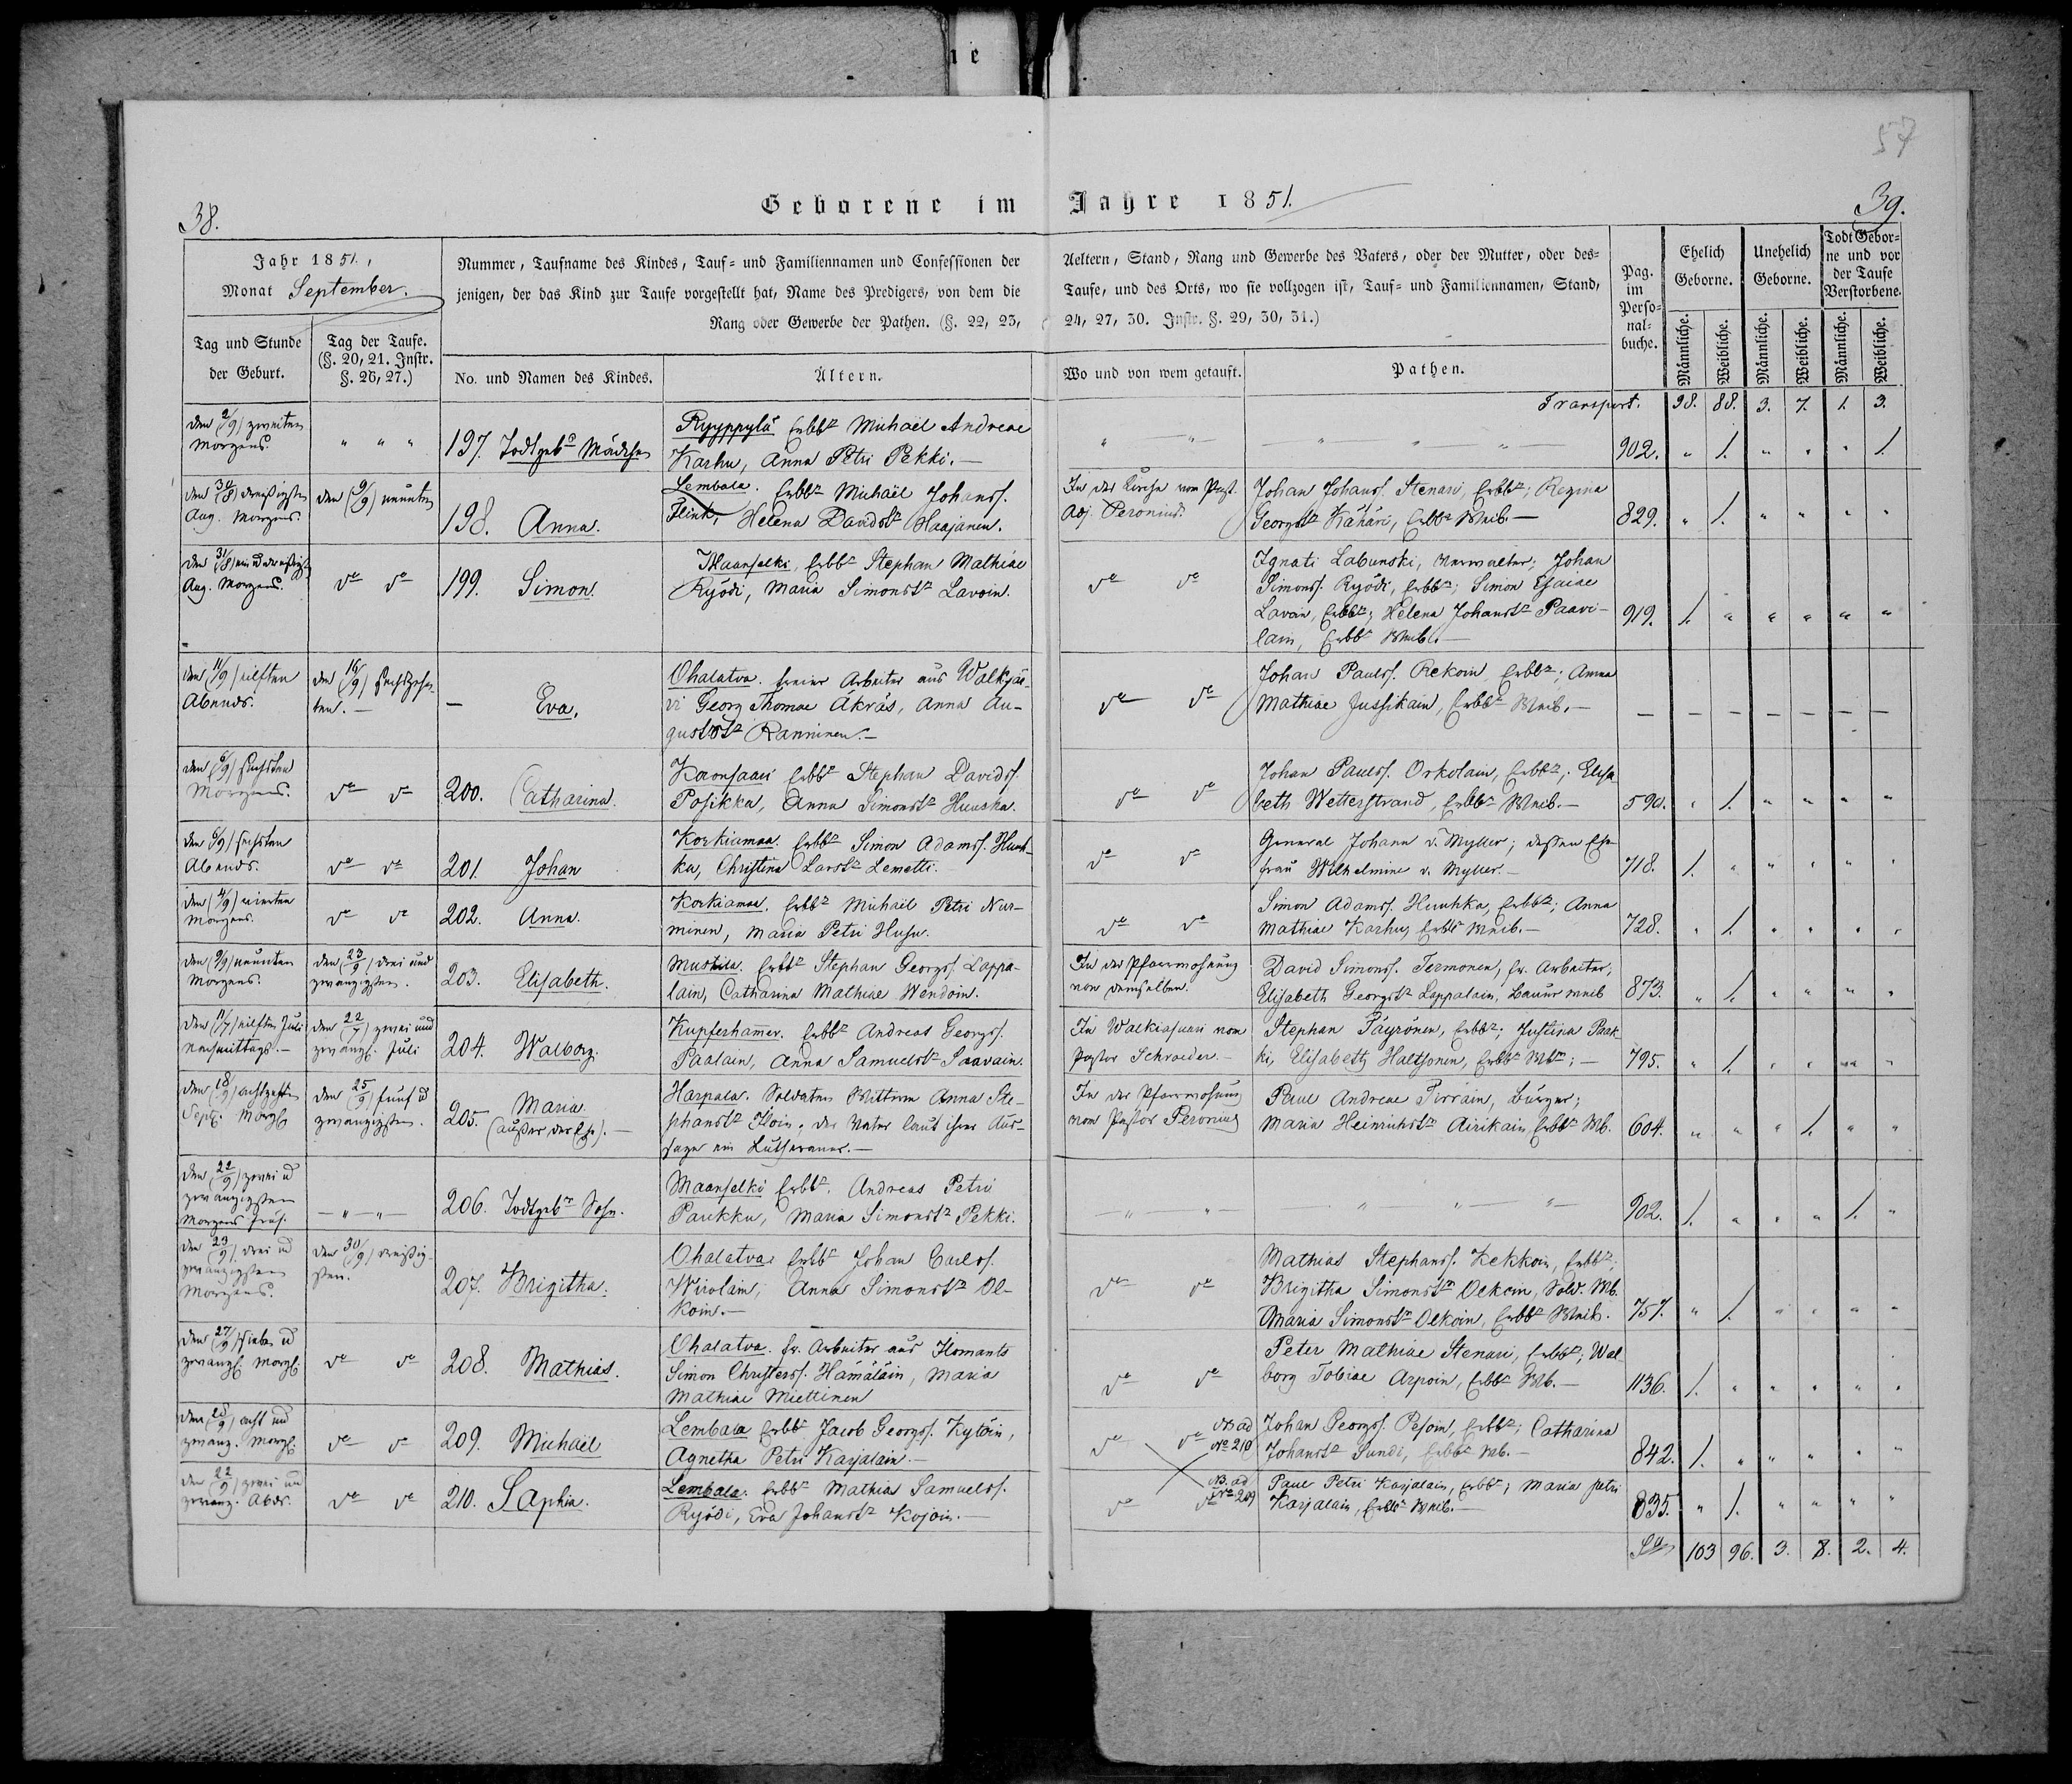 57
38.
Geborene im Jahre 1851.
39.
Jahr 1851,
Monat September.
Tag und Stunde
der Geburt.
Tag der Taufe.
(§. 20, 21. Instr.
§. 26, 27.)
Nummer, Taufname des Kindes, Tauf= und Familiennamen und Confessionen der
jenigen, der das Kind zur Taufe vorgestellt hat, Name des Predigers, von dem die
Rang oder Gewerbe der Pathen. (§. 22, 23,
No. und Namen des Kindes.
Ältern.
Aeltern, Stand, Rang und Gewerbe des Vaters, oder der Mutter, oder des=
Taufe, und des Orts, wo sie vollzogen ist, Tauf= und Familiennamen, Stand,
24, 27, 30. Instr. §. 29, 30, 31.)
Wo und von wem getauft.
Pathen.
Pag.
im
Perso=
nal=
buche.
Ehelich
Geborne.
Unehelich
Geborne.
Todt Gebor=
ne und vor
der Taufe
Verstorbene.
Männliche.
Weibliche.
Männliche.
Weibliche.
Männliche.
Weibliche.
Transport. 98. 88. 3. 7. 1. 3.
den (2/9) zweiten
Morgens.
" " "
197. Todtgeb. Mädchen
Ryyppylä Erbbr Michaël Andreae
Karhu, Anna Petri Pekki.—
902. " 1. " " " 1.
den (30/8) dreißigsten
Aug. Morgens.
den (9/9) neunten
198. Anna.
Lembala. Erbbr Michaël Johanss.
Flink, Helena Davidstr Haajanen.
In der Kirche vom Past.
Adj. Peronius.
Johan Johanss. Stenari, Erbbr; Regina
Georgstr Kähäri, Erbbr Weib.—
829. " 1. " " " "
den (31/8) ein u dreißigst
Aug. Morgens.
do do
199. Simon.
Maanselki, Erbbr Stephan Mathiae
Ryödi, Maria Simonstr Lavoin.
do do
Ignati Labunski, Verwalter; Johan
Simonss. Ryödi, Erbbr; Simon Esaiae
Lavoin, Erbbr; Helena Johanstr Paavi-
lain, Erbbr Weib.—
919. 1. " " " " "
den (11/9) eilften
Abends.
den (16/9) sechszehn-
ten.—
— Eva.
Ohalatva. freier Arbeiter aus Walkjär-
vi Georg Thomae Äkräs, Anna Au-
guststr Ranninen.—
do do
Johan Paulss. Rekoin, Erbbr; Anna
Mathiae Jussikain, Erbbr Weib.—
— — — — — — —
den (6/9) sechsten
Morgens.
do do
200. Catharina.
Kaonsaari Erbbr Stephan Davidss.
Posikka, Anna Simonstr Huuska.
do do
Johan Paulss. Orkolain, Erbbr; Elisa
beth Wetterstrand, Erbbr Weib.—
590. " 1. " " " "
den (6/9) sechsten
Abends.
do do
201. Johan
Korkiamaa. Erbbr Simon Adamss. Huuh-
ka, Christina Larstr Lemetti.
do do
General Johann v. Myller; dessen Ehe-
frau Wilhelmine v. Myller.—
718. 1. " " " " "
den (4/9) vierten
Morgens.
do do
202. Anna.
Korkiamaa. Erbbr Michaël Petri Nur-
minen, Maria Petri Husu.
do do
Simon Adamss. Huuhka, Erbbr; Anna
Mathiae Karhu, Erbbr Weib.—
728. " 1. " " " "
den (9/9) neunten
Morgens.
den (23/9) drei und
zwanzigsten.
203. Elisabeth.
Mustila. Erbbr Stephan Georgs. Lappa-
lain, Catharina Mathiae Wendoin.
In der Pfarrwohnung
von demselben.
David Simonss. Termonen, fr. Arbeiter;
Elisabeth Georgstr Lappalain, Bauer weib
873. " 1. " " " "
den (11/7) eilften Juli
Nachmittags.—
den (22/7) zwei und
zwanzgt. Juli
204. Walborg.
Kupferhammer. Erbbr Andreas Georgss.
Paalain, Anna Samuelstr Saavain.
In Walkiasaari vom
Pastor Schroeder.—
Stephan Päyrönen, Erbbr; Justina Paak
ki, Elisabeth Haltsonen, Erbbr Wbr;—
795. " 1. " " " "
den (18/9) achtzehten
Septr. Morg.
den (25/9) fünf u
zwanzigsten.
205. Maria
(außer der Ehe).—
Harpala. Soldaten Wittwe Anna Ste-
phanstr Iloin. der Vater laut ihrer Aus-
sage ein Lutheraner.—
In der Pfarrwohnung
vom Pastor Peronius
Paul Andreae Pirräin, Bürger;
Maria Heinrichstr Airikain, Erbbr Wb.
604. " " " 1. " "
den (22/9) zwei u
zwanzigsten
Morgens früh.
— " — " —
206. Todtgebr Sohn.
Maanselki Erbbr. Andreas Petri
Parikka, Maria Simonstr Pekki.
902. 1. " " " 1. "
den (23/9) drei u
zwanzigsten
Morgens.
den (30/9) dreißig-
sten.
207. Brigitha.
Ohalatva Erbbr Johan Carlss.
Wirolain, Anna Simonstr Ol-
koin.—
do do
Mathias Stephanss. Kekkoin, Erbbr;
Brigitha Simonstr Olkoin, Sold. Wb.
Maria Simonstr Olkoin, Erbbr Weib.
757. " 1. " " " "
den (27/9) sieben u
zwanzgt. Morg.
do do
208. Mathias.
Ohalatva. fr. Arbeiter aus Ilomants
Simon Christerss. Hämäläin, Maria
Mathiae Miettinen
do do
Peter Mathiae Stenari, Erbbr; Wal
borg Tobiae Arpoin, Erbbr Wb.—
1136. 1. " " " " "
den (28/9) acht und
zwanz. Morg.
do do
209. Michaël
Lembala Erbbr Jacob Georgss. Kyläin,
Agnetha Petri Karjalain.—
do do NB ad
No 210
Johan Georgss. Pesoin, Erbbr; Catharina
Johanstr Sundi, Erbbr Wb.—
842. 1. " " " " "
den (22/9) zwei und
zwanz. Abds.
do do
210. Saphia.
Lembala. Erbbr Mathias Samuelss.
Ryödi, Eva Johanstr Kojoin.—
do do NB. ad
No 209
Paul Petri Karjalain, Erbbr; Maria Petri
Karjalain, Erbbr Weib.—
835. " 1. " " " "
Sa 103 96. 3. 8. 2. 4.